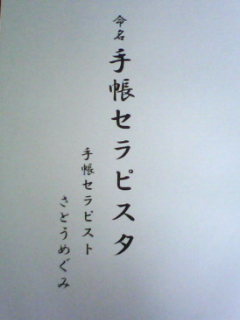 命名 手帳セラピスタ
手帳セラピスト
さとうめぐみ